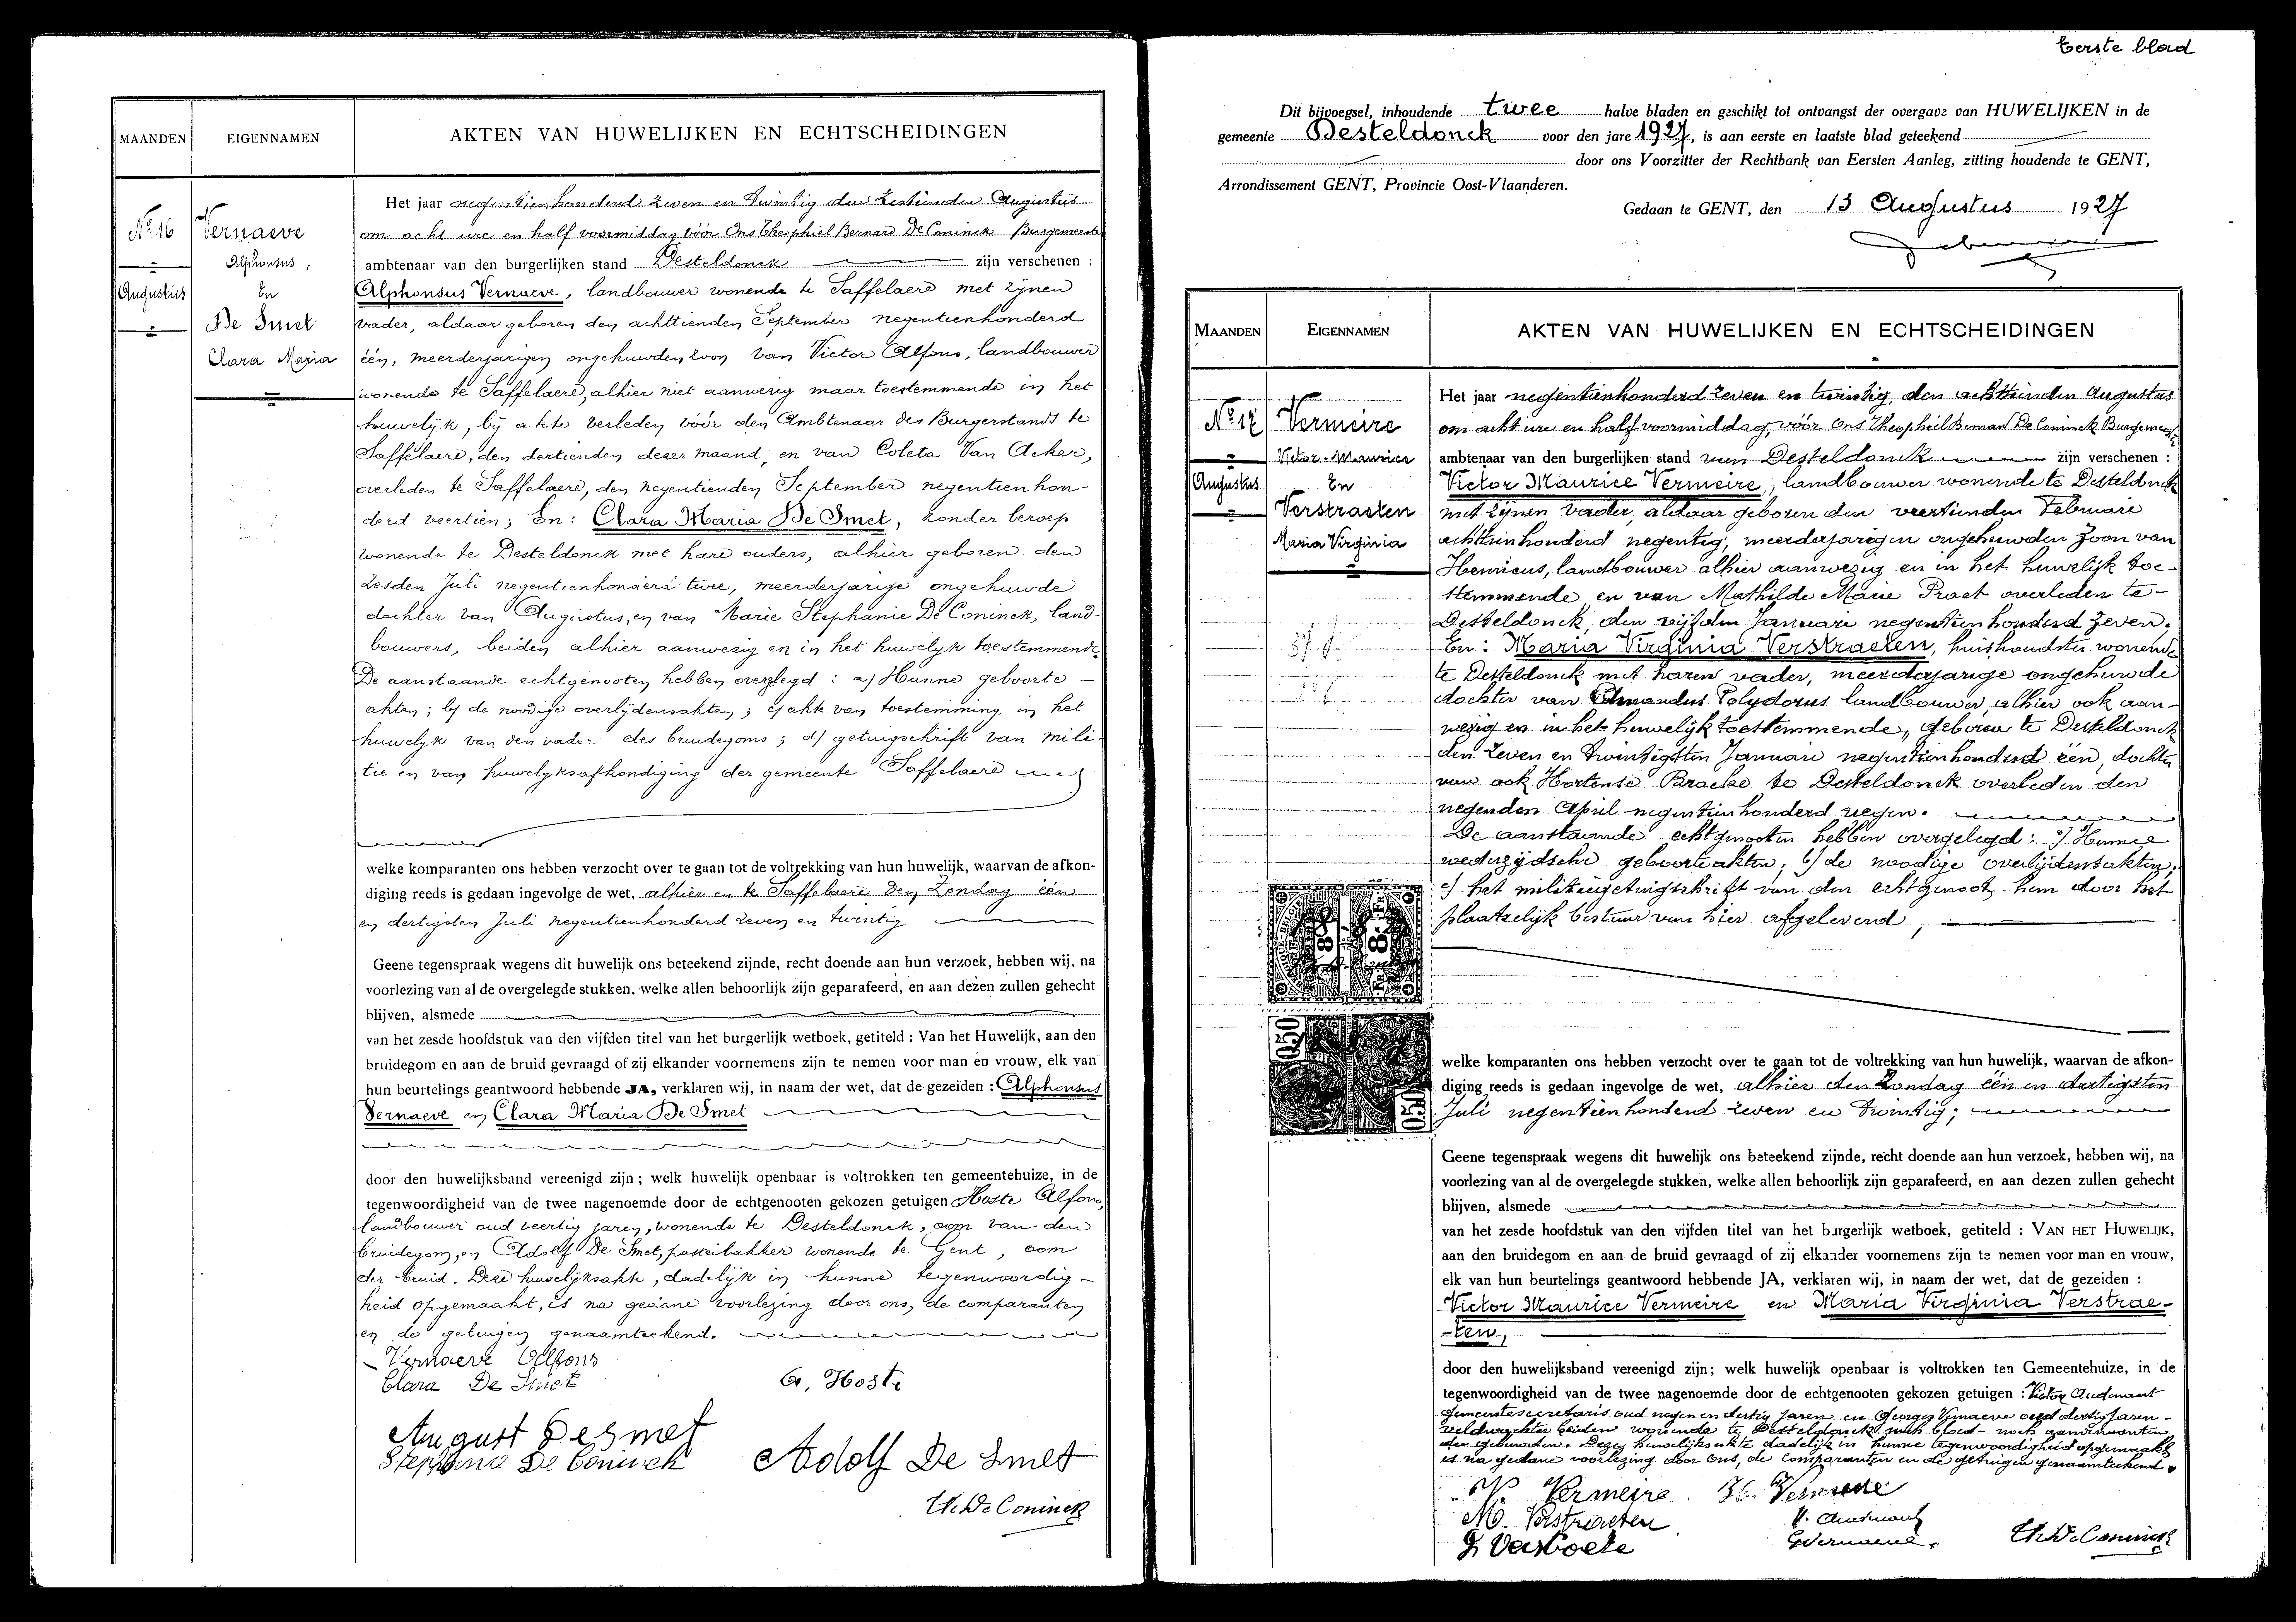 MAANDEN
EIGENNAMEN
AKTEN VAN HUWELIJKEN EN ECHTSCHEIDINGEN
No 16
Augustus
Vernaeve
Alphonsus,
En
De Smet
Clara Maria
Het jaar negentienhonderd zeven en twintig den zestienden Augustus
om acht ure en half voormiddag vóór Ons Theophiel Bernard De Coninck Burgemeester
ambtenaar van den burgerlijken stand Desteldonck zijn verschenen :
Alphonsus Vernaeve, landbouwer wonende te Saffelaere met zijnen
vader, aldaar geboren den achttienden September negentienhonderd
één, meerderjarigen ongehuwden zoon van Victor Alfons, landbouwer
wonende te Saffelaere, alhier niet aanwezig maar toestemmende in het
huwelijk, bij akte verleden vóór den Ambtenaar des Burgerstands te
Saffelaere, den dertienden dezer maand, en van Coleta Van Acker,
overleden te Saffelaere, den negentienden September negentienhon-
derd veertien; En: Clara Maria De Smet, zonder beroep
wonende te Desteldonck met hare ouders, alhier geboren den
zesden Juli negentienhonderd twee, meerderjarige ongehuwde
dochter van Augustus, en van Marie Stephanie De Coninck, land-
bouwers, beiden alhier aanwezig en in het huwelijk toestemmende
De aanstaande echtgenooten hebben overgelegd : a) Hunne geboorte-
akten; b) de noodige overlijdensakten; c) akte van toestemming in het
huwelyk van den vader des bruidegoms; d) getuigschrift van mili-
tie en van huwelyksafkondiging der gemeente Saffelaere
welke komparanten ons hebben verzocht over te gaan tot de voltrekking van hun huwelijk, waarvan de afkon-
diging reeds is gedaan ingevolge de wet, alhier en te Saffelaere den Zondag één
en dertigsten Juli negentienhonderd zeven en twintig
Geene tegenspraak wegens dit huwelijk ons beteekend zijnde, recht doende aan hun verzoek, hebben wij, na
voorlezing van al de overgelegde stukken, welke allen behoorlijk zijn geparafeerd, en aan dezen zullen gehecht
blijven, alsmede
van het zesde hoofdstuk van den vijfden titel van het burgerlijk wetboek, getiteld : Van het Huwelijk, aan den
bruidegom en aan de bruid gevraagd of zij elkander voornemens zijn te nemen voor man en vrouw, elk van
hun beurtelings geantwoord hebbende JA, verklaren wij, in naam der wet, dat de gezeiden : Alphonsus
Vernaeve en Clara Maria De Smet
door den huwelijksband vereenigd zijn ; welk huwelijk openbaar is voltrokken ten gemeentehuize, in de
tegenwoordigheid van de twee nagenoemde door de echtgenooten gekozen getuigen Hoste Alfons,
landbouwer oud veertig jaren, wonende te Desteldonck, oom van den
bruidegom, en Adolf De Smet, pasteibakker wonende te Gent, oom
der bruid. Deze huwelijksakte, dadelijk in hunne tegenwoordig-
heid opgemaakt, is na gedane voorlezing door ons, de comparanten
en de getuigen genaamteekend.
Vernaeve Alfons
Clara De Smet
A, Hoste
August Desmet
Stephanie De Coninck
Adolf De Smet
Th. De Coninck
Eerste blad
Dit bijvoegsel, inhoudende twee halve bladen en geschikt tot ontvangst der overgave van HUWELIJKEN in de
gemeente Desteldonck voor den jare 1927, is aan eerste en laatste blad geteekend
door ons Voorzitter der Rechtbank van Eersten Aanleg, zitting houdende te GENT,
Arrondissement GENT, Provincie Oost-Vlaanderen.
Gedaan te GENT, den 13 Augustus 1927
MAANDEN
EIGENNAMEN
AKTEN VAN HUWELIJKEN EN ECHTSCHEIDINGEN
No 17
Augustus
Vermeire
Victor-Maurice
En
Verstraeten
Maria Virginia
Het jaar negentienhonderd zeven en twintig, den achttienden Augustus
om acht ure en half voormiddag, vóór Ons Theophiel Bernard De Coninck Burgemeester
ambtenaar van den burgerlijken stand van Desteldonck zijn verschenen :
Victor Maurice Vermeire, landbouwer wonende te Desteldonck
met zijnen vader, aldaar geboren den veertienden Februari
achttienhonderd negentig, meerderjarigen ongehuwden zoon van
Henricus, landbouwer alhier aanwezig en in het huwelijk toe-
stemmende en van Mathilde Marie Praet overleden te-
Desteldonck den vijfden Januari negentienhonderd zeven.
En: Maria Virginia Verstraeten, huishoudster wonende
te Desteldonck met haren vader, meerderjarige ongehuwde
dochter van Amandus Polydorus landbouwer, alhier ook aan-
wezig en in het huwelijk toestemmende, geboren te Desteldonck
den zeven en twintigsten Januari negentienhonderd één, dochter
van ook Hortense Bracke te Desteldonck overleden den
negenden April negentienhonderd negen.
De aanstaande echtgenooten hebben overgelegd: a) Hunne
wederzijdsche geboorteakten; b) de noodige overlijdensakten;
c) het militiegetuigschrift van den echtgenoot hem door het
plaatselijk bestuur van hier afgeleverd,
8
8 FR
0.50
0.50
welke komparanten ons hebben verzocht over te gaan tot de voltrekking van hun huwelijk, waarvan de afkon-
diging reeds is gedaan ingevolge de wet, alhier den Zondag één en dertigsten
Juli negentienhonderd zeven en twintig;
Geene tegenspraak wegens dit huwelijk ons beteekend zijnde, recht doende aan hun verzoek, hebben wij, na
voorlezing van al de overgelegde stukken, welke allen behoorlijk zijn geparafeerd, en aan dezen zullen gehecht
blijven, alsmede
van het zesde hoofdstuk van den vijfden titel van het burgerlijk wetboek, getiteld : VAN HET HUWELIJK,
aan den bruidegom en aan de bruid gevraagd of zij elkander voornemens zijn te nemen voor man en vrouw,
elk van hun beurtelings geantwoord hebbende JA, verklaren wij, in naam der wet, dat de gezeiden :
Victor Maurice Vermeire en Maria Virginia Verstrae-
-ten,
door den huwelijksband vereenigd zijn; welk huwelijk openbaar is voltrokken ten Gemeentehuize, in de
tegenwoordigheid van de twee nagenoemde door de echtgenooten gekozen getuigen : Victor Audenaert
gemeentesecretaris oud negen en dertig jaren en Georges Vernaeve oud dertig jaren-
veldwachter beiden wonende te Desteldonck, noch bloed- noch aanverwanten
der gehuwden. Deze huwelijksakte dadelijk in hunne tegenwoordigheid opgemaakt
is na gedane voorlezing door Ons, de comparanten en de getuigen genaamteekend.
V. Vermeire. H. Vermeire
M. Verstraeten
V. Audenaert
GVernaeve.
Th. De Coninck